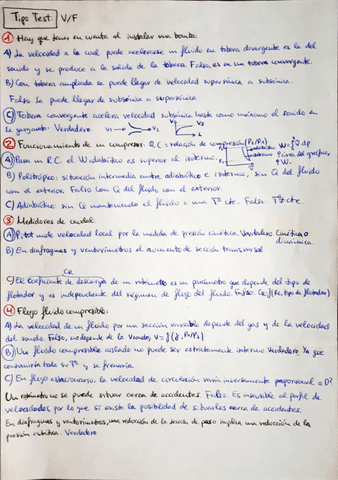 Tipo Test: V/F
① Hay que tener en cuenta al instalar una bomba:
A) La velocidad a la cual puede acelerarse un fluido en tobera divergente es la del
sonido y se produce a la salida de la tobera. Falso, es en una tobera convergente.
B) Con tobera ampliada se puede llegar de velocidad supersónica a subsónica.
Falso Se puede llegar de subsónica a supersónica.
C) Tobera convergente acelera velocidad subsónica hasta como máximo el sonido en
la garganta. Verdadero.
② Funcionamiento de un compresor. R.C = relación de compresión (P2/P1)
A) Para un R.C. el W adiabático es superior al isotermo.
B) Politrópico: situación intermedia entre adiabático e isotermo, sin Q del fluido
con el exterior. Falso con Q del fluido con el exterior.
C) Adiabático: sin Q manteniendo el fluido a una Tª cte. Falso. T ≠ cte.
③ Medidores de caudal:
A) P. tot mide velocidad local por la medida de presión cinética. Verdadero Cinética o
dinámica.
B) En diafragmas y venturímetros el aumento de sección transversal
CR
C) El coeficiente de descarga de un rotámetro es un parámetro que depende del tipo de
flotador y es independiente del régimen de flujo del fluido. Falso. CR = f(Re, tipo de flotador)
④ Flujo fluido compresible:
A) La velocidad de un fluido por una sección variable depende del gas y de la velocidad
del sonido. Falso, no depende de la
B) Un fluido compresible aislado no puede ser estrictamente isotermo. Verdadero, ya que
su Tª y se frenaría.
C) En flujo estacionario, la velocidad de circulación varía inversamente proporcional a D²
Un rotámetro no se puede situar cerca de accidentes. Falso. Es insensible al perfil de
velocidades por lo que sí existe la posibilidad de situarlos cerca de accidentes.
En diafragmas y venturímetros, una reducción de la sección de paso implica una reducción de la
presión estática. Verdadero